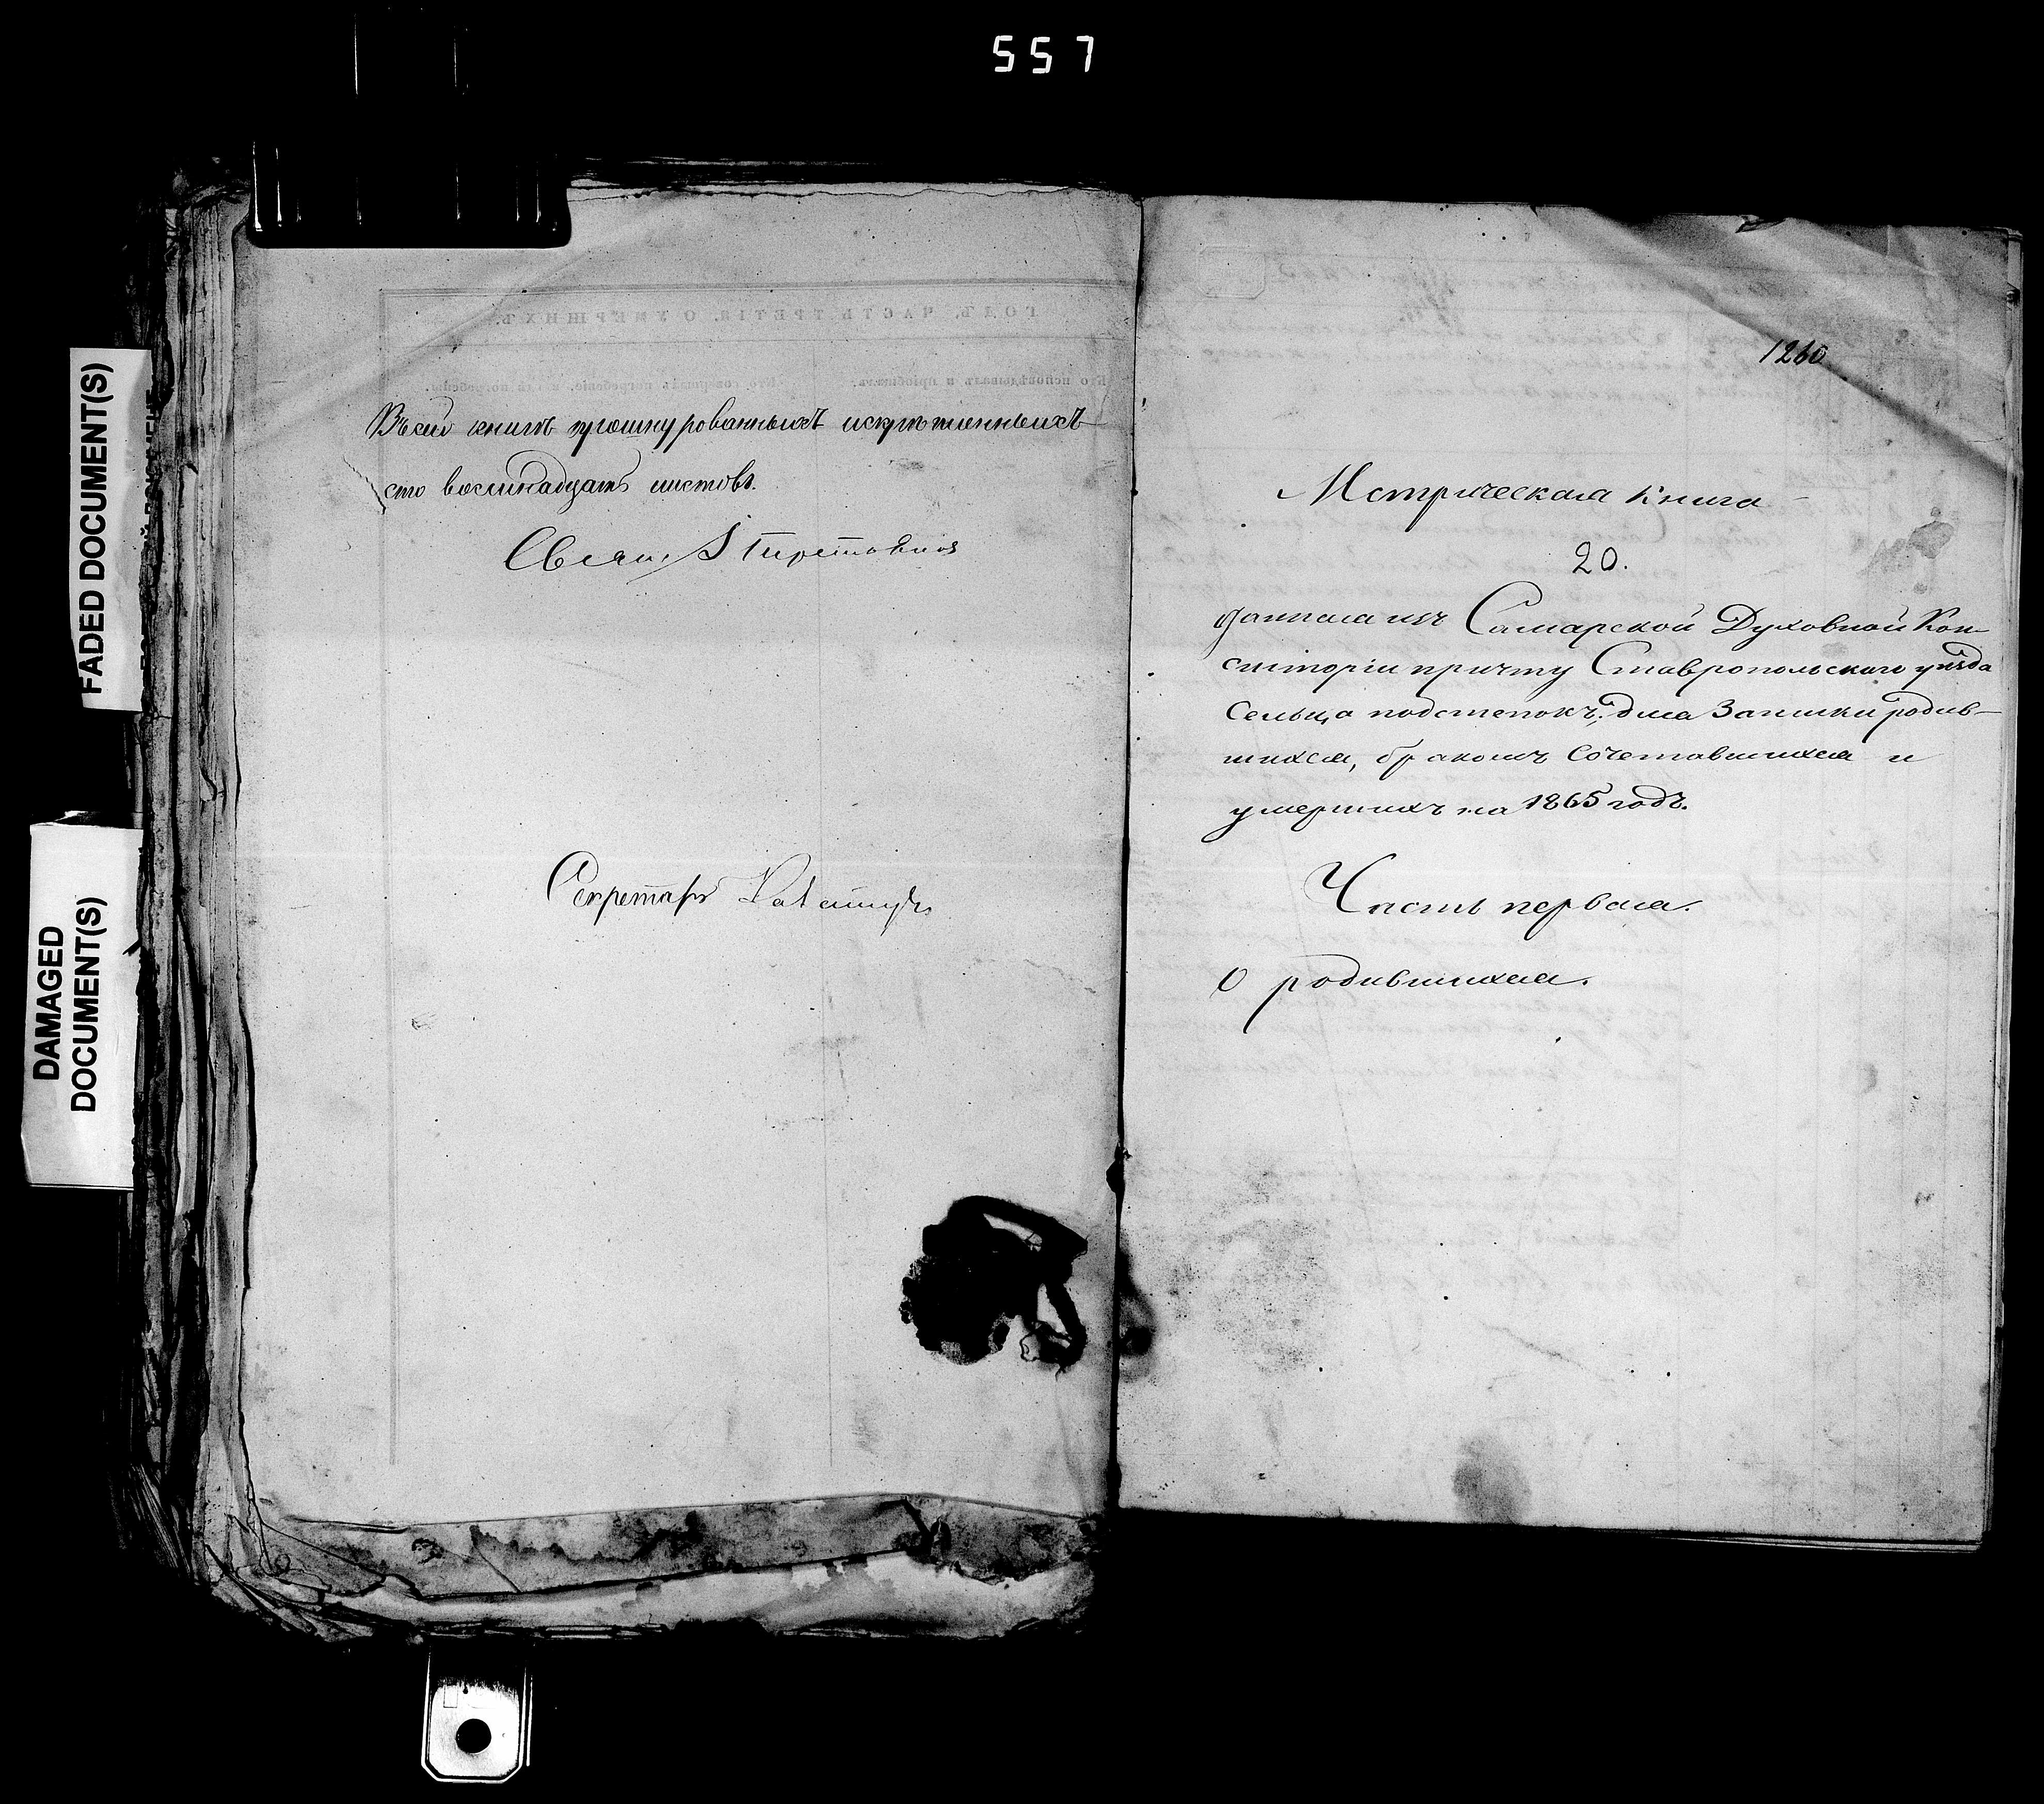 557
FADED DOCUMENT(S)
DAMAGED
DOCUMENT(S)
ГОДЪ, ЧАСТЬ ТРЕТІЯ, О УМЕРШИХЪ.
Кто исповѣдывалъ и пріобщалъ.
Кто совершалъ погребеніе, и гдѣ погребены.
Въ сей книгѣ прошнурованныхъ и скрѣпленныхъ
сто восемнадцать листовъ.
Секретарь
1260
Метрическая книга
20.
данная изъ Самарской Духовной Кон-
систоріи причту Ставропольскаго уѣзда
Сельца подстепокъ, для Записки родив-
шихся, бракомъ Сочетавшихся и
умершихъ на 1865 годъ.
Часть первая.
О родившихся.